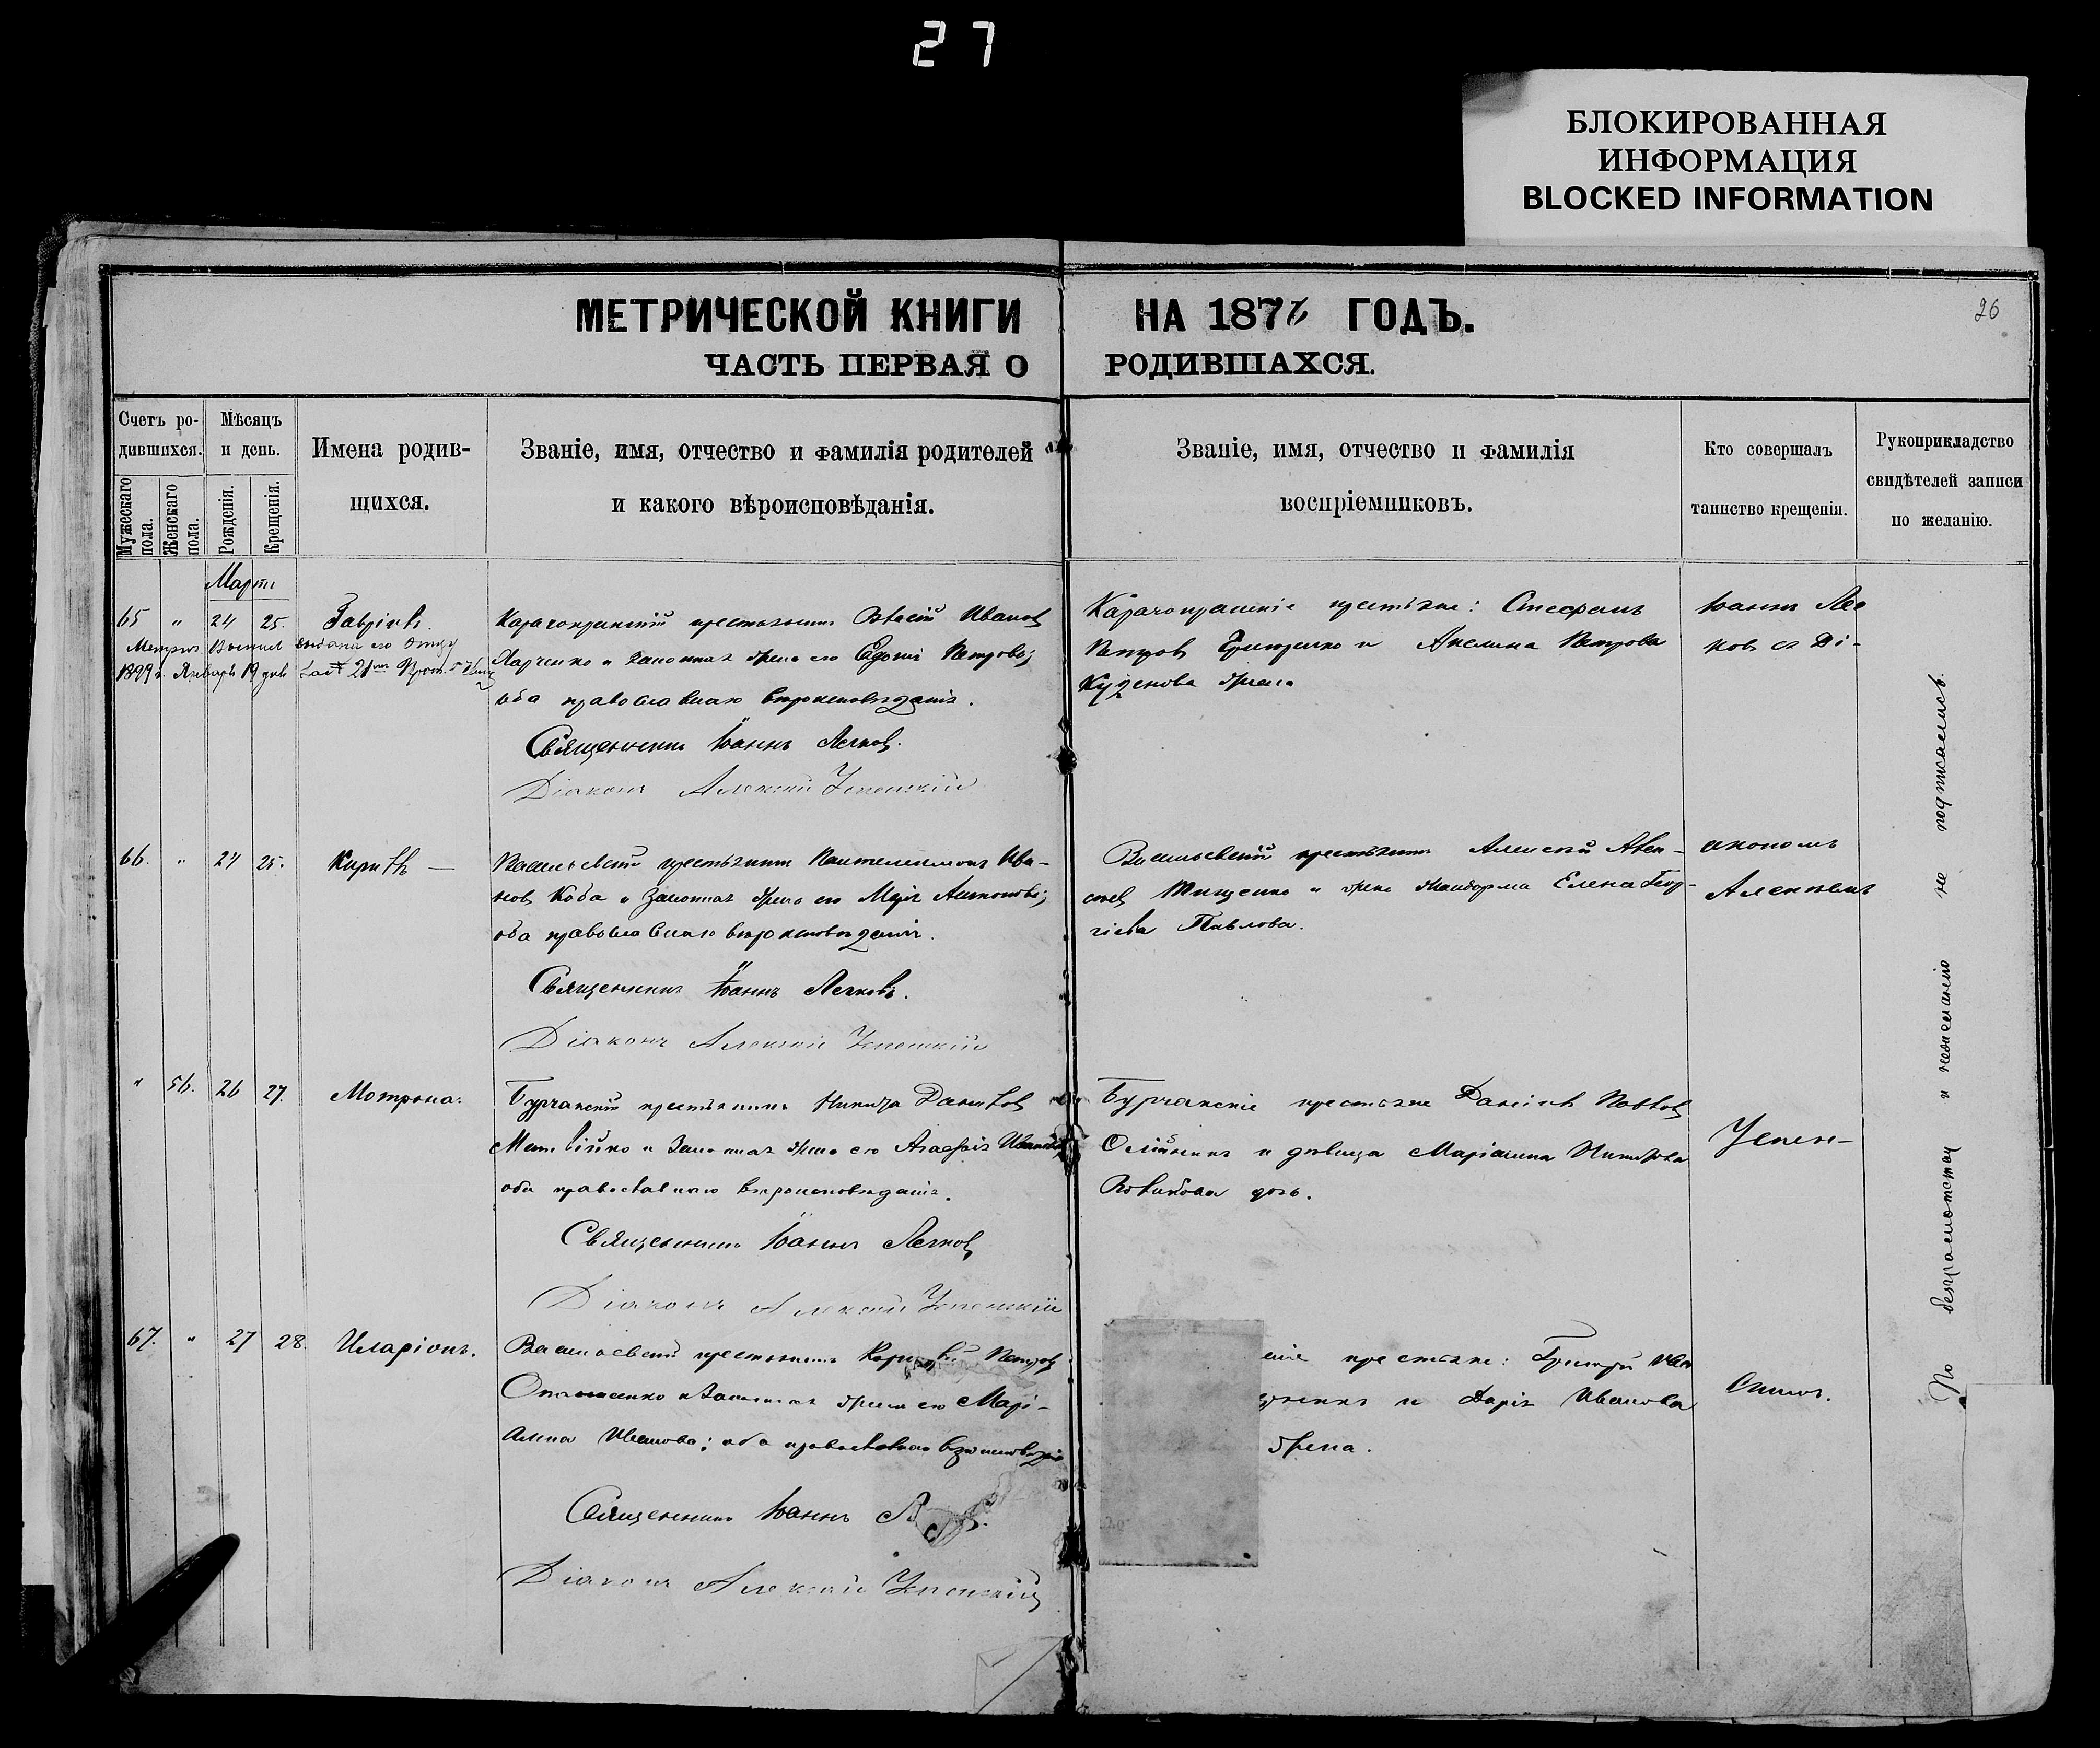 27
БЛОКИРОВАННАЯ
ИНФОРМАЦИЯ
BLOCKED INFORMATION
26
МЕТРИЧЕСКОЙ КНИГИ НА 187 ГОДЪ.
ЧАСТЬ ПЕРВАЯ О РОДИВШАХСЯ.
Счетъ ро-
дившихся.
Мужескаго
пола.
Женскаго
пола.
Мѣсяцъ
и день.
Рожденія.
Крещенія.
Имена родив-
щихся.
Званіе, имя, отчество и фамилія родителей
и какого вѣроисповѣданія.
Званіе, имя, отчество и фамилія
воспріемниковъ.
Кто совершалъ
таинство крещенія.
Рукоприкладство
свидѣтелей записи
по желанію.
Мартъ
65 " 24 25. Гавріилъ.
1899 г. Январь 19 дня
крестьянинъ Ивановъ
Харченко и законная жена его Петрова;
оба православнаго вѣроисповѣданія.
Священникъ Іоаннъ Легковъ.
Діаконъ Алексій Успенскій
крестьяне: Стефанъ
Петровъ и Акелина Петрова
жена
Іоаннъ Лег
ковъ съ Ді-
66. " 24 25. Кирилъ —
Васильевскій крестьянинъ Пантелеимонъ Ива-
новъ Коба и законная жена его Антонова;
оба православнаго вѣроисповѣданія.
Священникъ Іоаннъ Легковъ.
Діаконъ Алексій Успенскій
Васильевскій крестьянинъ Алексій
Тищенко и жена Елена Геор-
гіева Павлова.
акономъ
Алексіемъ
" 56. 26 27. Мотрона.
Бурчакскій крестьянинъ Никита Даниловъ
Матвійко и законная жена его Агафія Иванова
оба православнаго вѣроисповѣданія.
Священникъ Іоаннъ Легковъ
Діаконъ Алексій Успенскій
Бурчакскіе крестьяне Даніилъ Павловъ
Олійникъ и дѣвица Маріанна
Новикова дочь.
Успен-
67. " 27 28. Иларіонъ.
Васильевскій крестьянинъ Петровъ
и законная жена его Марі-
анна Иванова; оба православнаго вѣроисповѣданія
Священникъ Іоаннъ
Діаконъ Алексій Успенскій
крестьяне: Григорій Иван
и Дарія Иванова
жена.
скимъ.
По безграмотству и нежеланію не подписались.